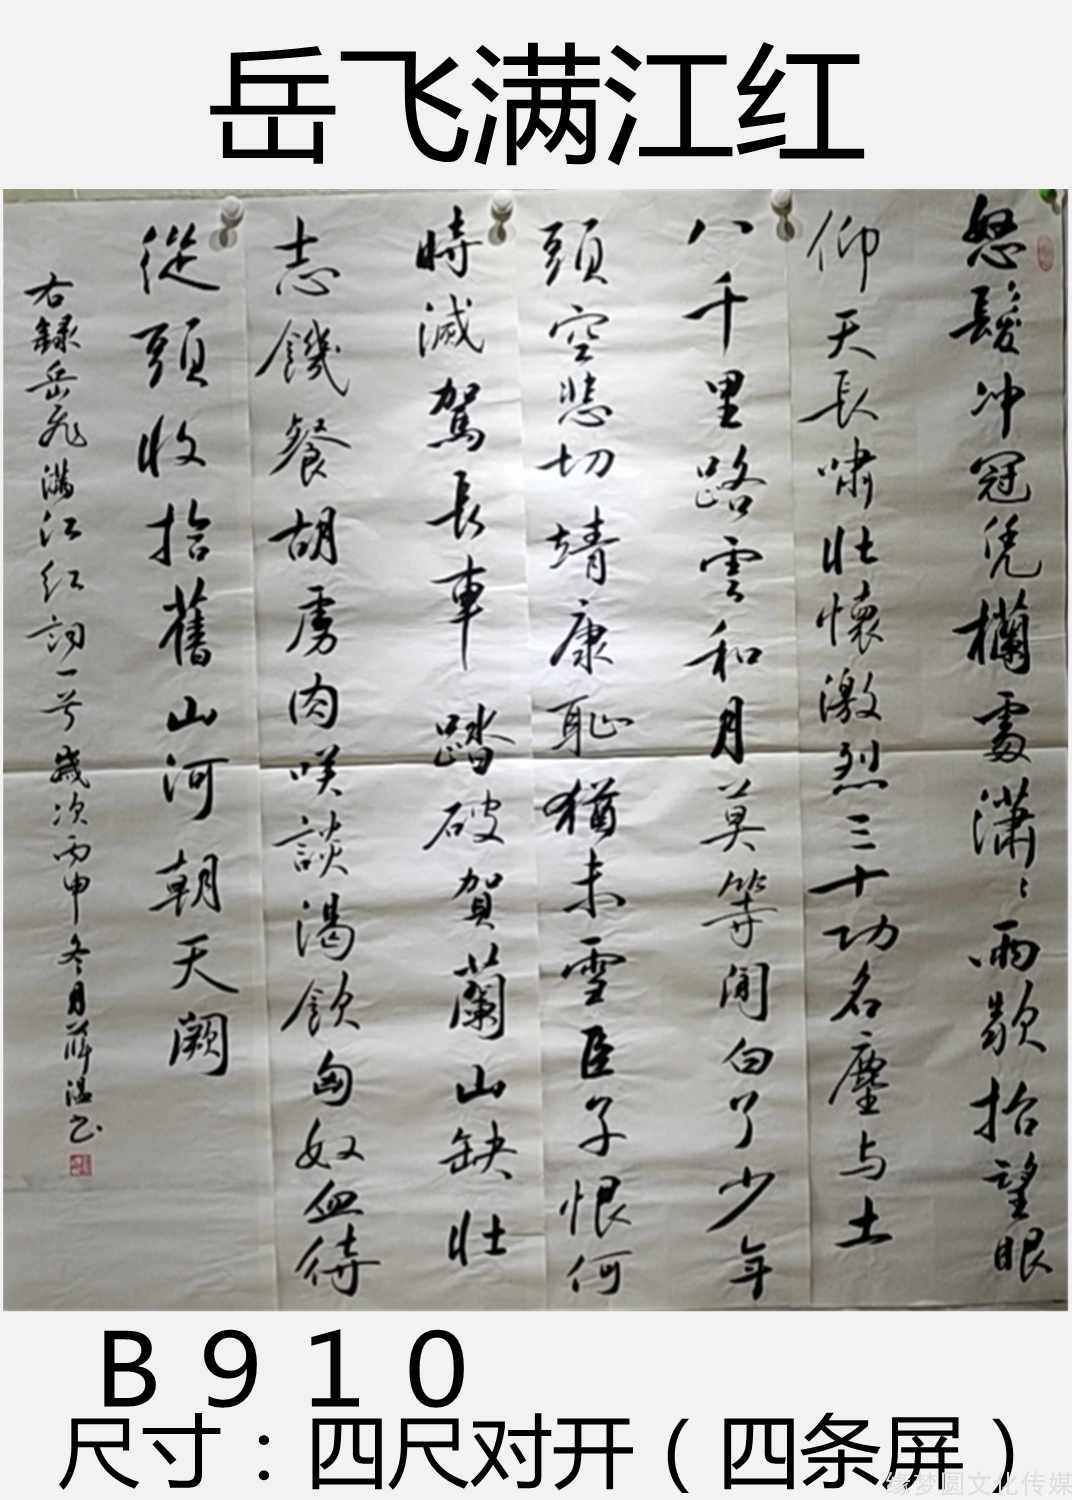 岳飞满江红
怒髮冲冠凭欄處瀟〻雨歇抬望眼
仰天長嘯壯懷激烈三十功名塵与土
八千里路雲和月莫等閒白了少年
頭空悲切靖康恥猶未雪臣子恨何
時滅駕長車踏破賀蘭山缺壯
志饑餐胡虜肉笑談渴飲匈奴血待
從頭收拾舊山河朝天闕
右録岳飛满江红詞一首歲次丙申冬月薛温书
B910
尺寸：四尺对开（四条屏）
缘梦圆文化传媒